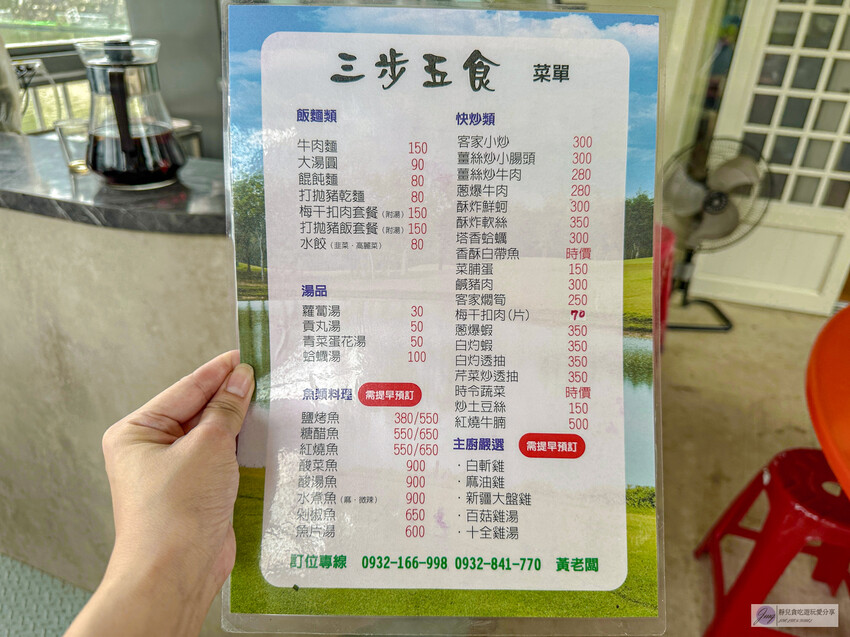 三步五食 菜單
飯麵類
牛肉麵 150
大湯圓 90
餛飩麵 80
打拋豬乾麵 80
梅干扣肉套餐(附湯) 150
打拋豬飯套餐(附湯) 150
水餃(韭菜·高麗菜) 80
湯品
蘿蔔湯 30
貢丸湯 50
青菜蛋花湯 50
蛤蠣湯 100
魚類料理 需提早預訂
鹽烤魚 380/550
糖醋魚 550/650
紅燒魚 550/650
酸菜魚 900
酸湯魚 900
水煮魚(麻·微辣) 900
剁椒魚 650
魚片湯 600
快炒類
客家小炒 300
薑絲炒小腸頭 300
薑絲炒牛肉 280
蔥爆牛肉 280
酥炸鮮蚵 300
酥炸軟絲 350
塔香蛤蠣 300
香酥白帶魚 時價
菜脯蛋 150
鹹豬肉 300
客家燜筍 250
梅干扣肉(片) 70
蔥爆蝦 350
白灼蝦 350
白灼透抽 350
芹菜炒透抽 350
時令蔬菜 時價
炒土豆絲 150
紅燒牛腩 500
主廚嚴選 需提早預訂
·白斬雞
·麻油雞
·新疆大盤雞
·百菇雞湯
·十全雞湯
訂位專線 0932-166-998 0932-841-770 黃老闆
靜兒貪吃遊玩愛分享